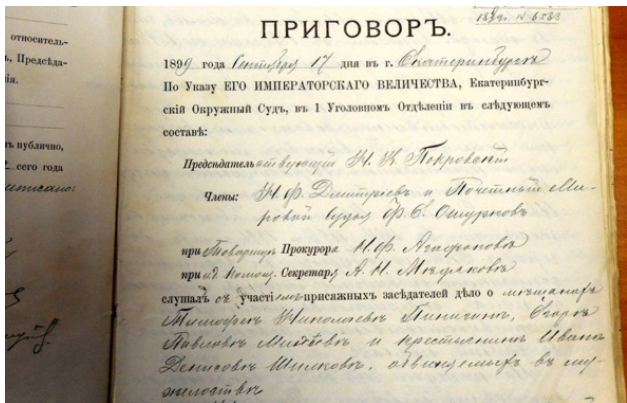 относитель-
ъ, Предсѣда-
ія.
ъ публично,
сего года
писано:
ПРИГОВОРЪ.
1899 года Сентября 17 дня въ г. Екатеринбургѣ
По Указу ЕГО ИМПЕРАТОРСКАГО ВЕЛИЧЕСТВА, Екатеринбург-
скій Окружный Судъ, въ 1 Уголовномъ Отдѣленіи въ слѣдующемъ
составѣ:
Предсѣдательствующій Н. К. Покровскій
Члены: Н. Ф. Дмитріевъ и Почетный Ми-
ровой Судья Ф. Б. Ошурковъ
при Товарищѣ Прокурора Н. Ф. Агафоновѣ
при и.д. Помощ. Секретаря А. Н.
слушалъ съ участіемъ присяжныхъ засѣдателей дѣло о мѣщанахъ
Тимофеѣ Николаевѣ Пиничинѣ, Егорѣ
Павловѣ и крестьянинѣ Иванѣ
Денисовѣ Шилковѣ, обвиняемыхъ въ му-
желоствѣ